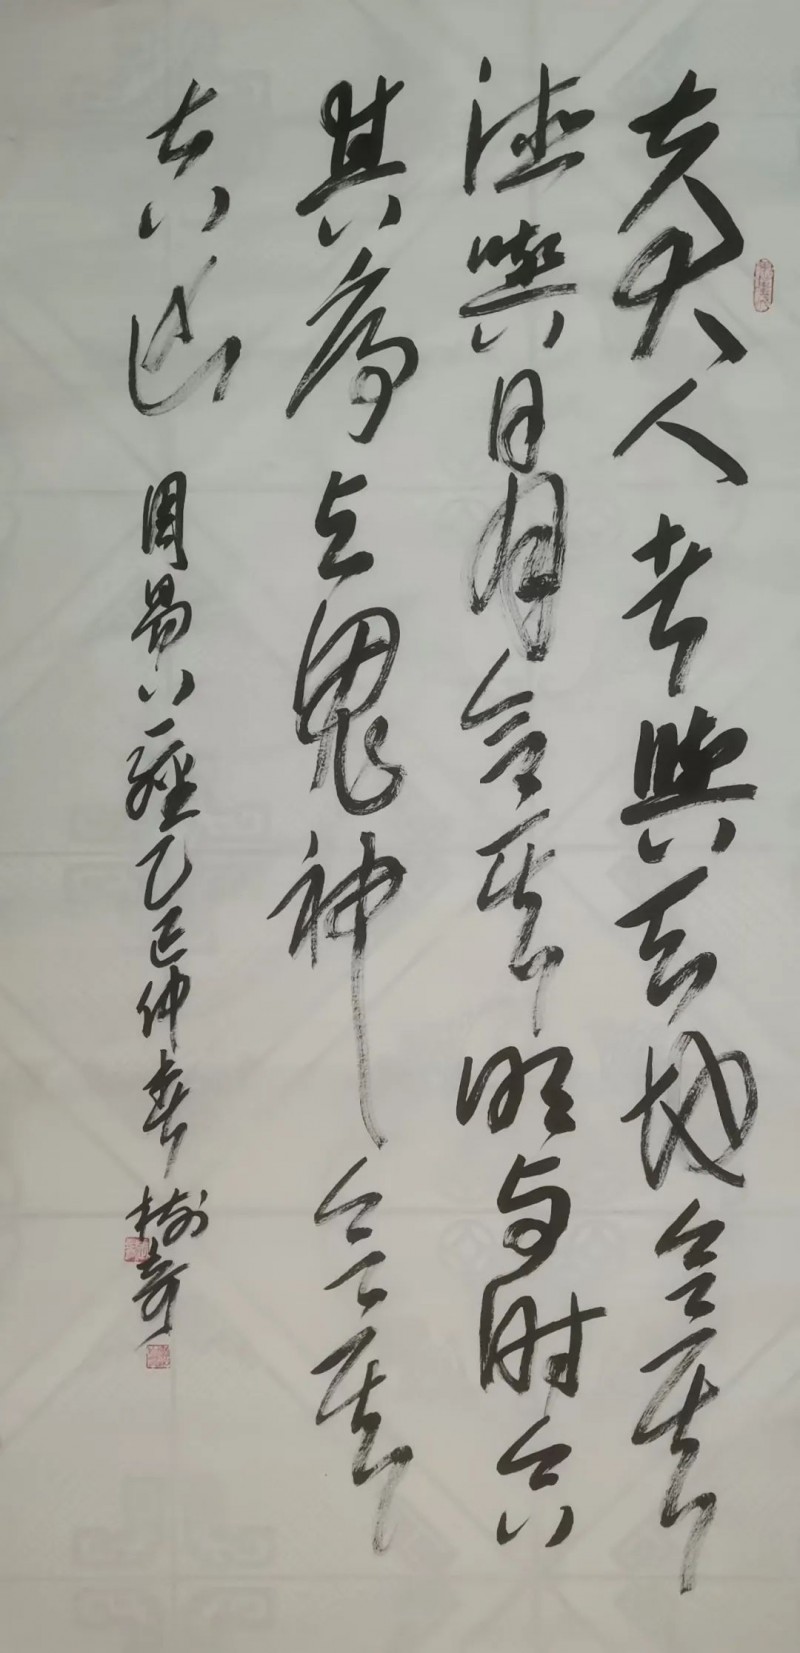 夫大人者與天地合其
德與日月合其明与时合
其序与鬼神合其
吉凶 周易六经乙巳仲春 树奇